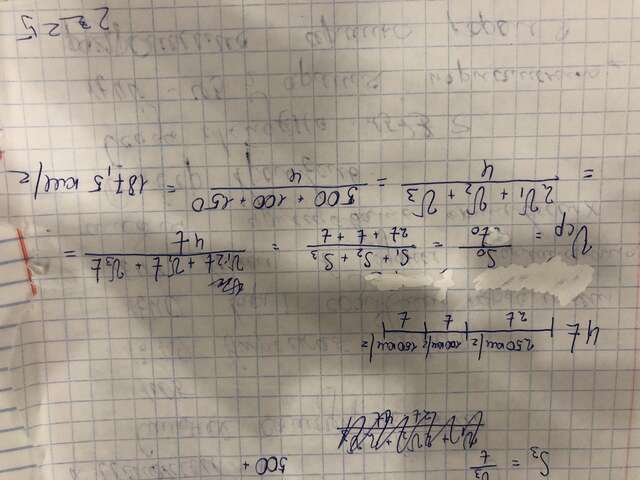 S₃ = V₃/t
500 +
4t 250км/г 100км/г 150км/г
2t t t
Vср = S₀/t₀ = (S₁ + S₂ + S₃)/(2t + t + t) = (V₁2t + V₂t + V₃t)/4t =
= (2V₁ + V₂ + V₃)/4 = (500 + 100 + 150)/4 = 187,5 км/г